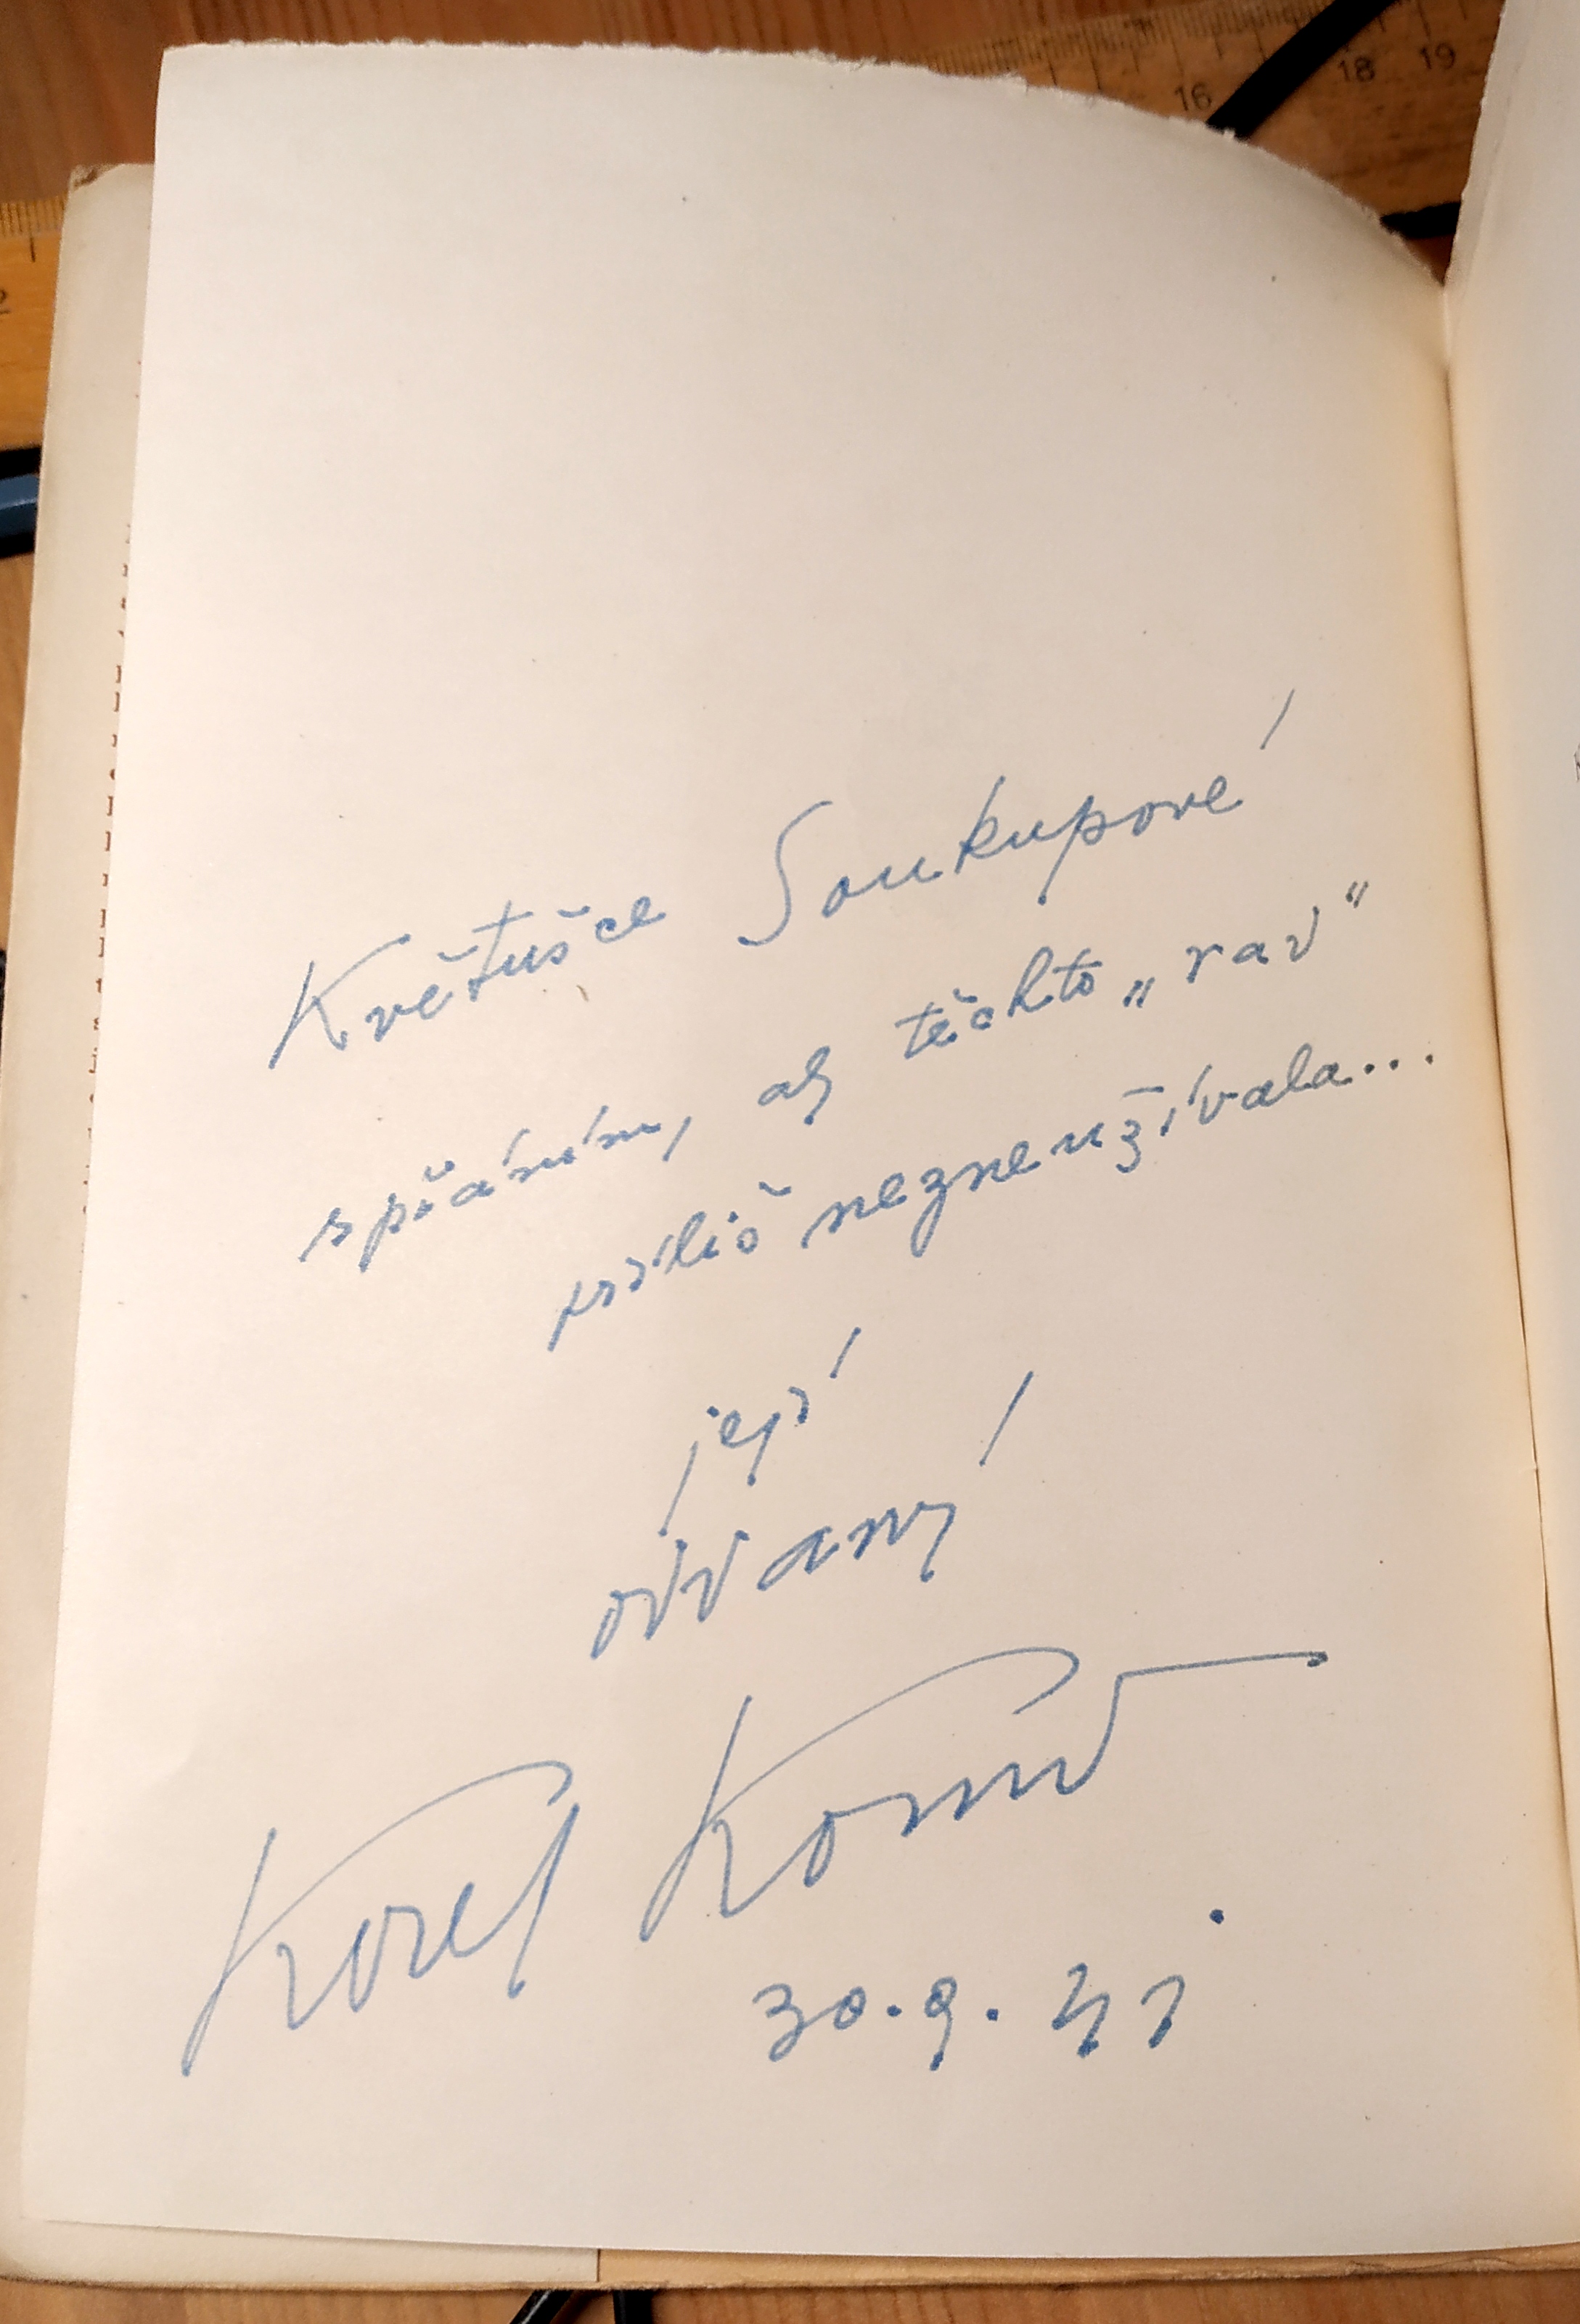 16 18 19
Květušce Soukupové
s přáním, aby těchto „rad“
příliš nezneužívala...
její
oddaný
Karel Konrád
30. 9. 41